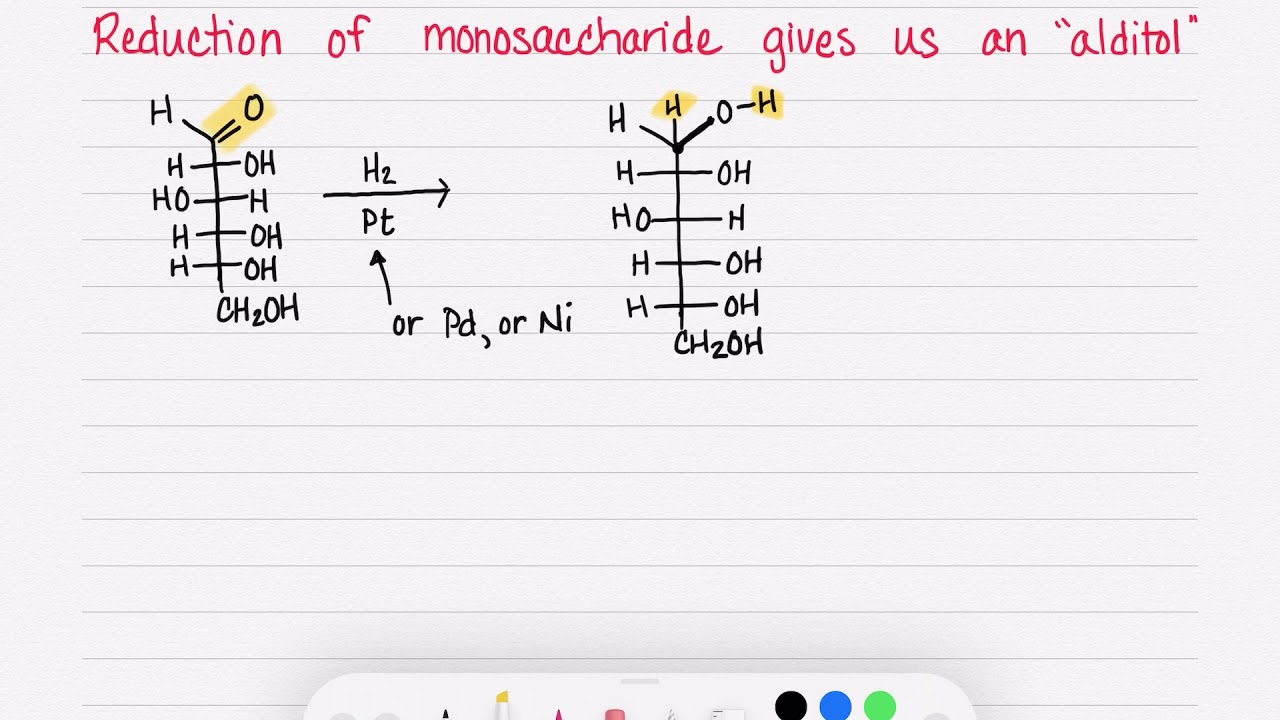 Reduction of monosaccharide gives us an "alditol"
H O
H OH
HO H
H OH
H OH
CH2OH
H2
Pt
or Pd, or Ni
H H O-H
H OH
HO H
H OH
H OH
CH2OH